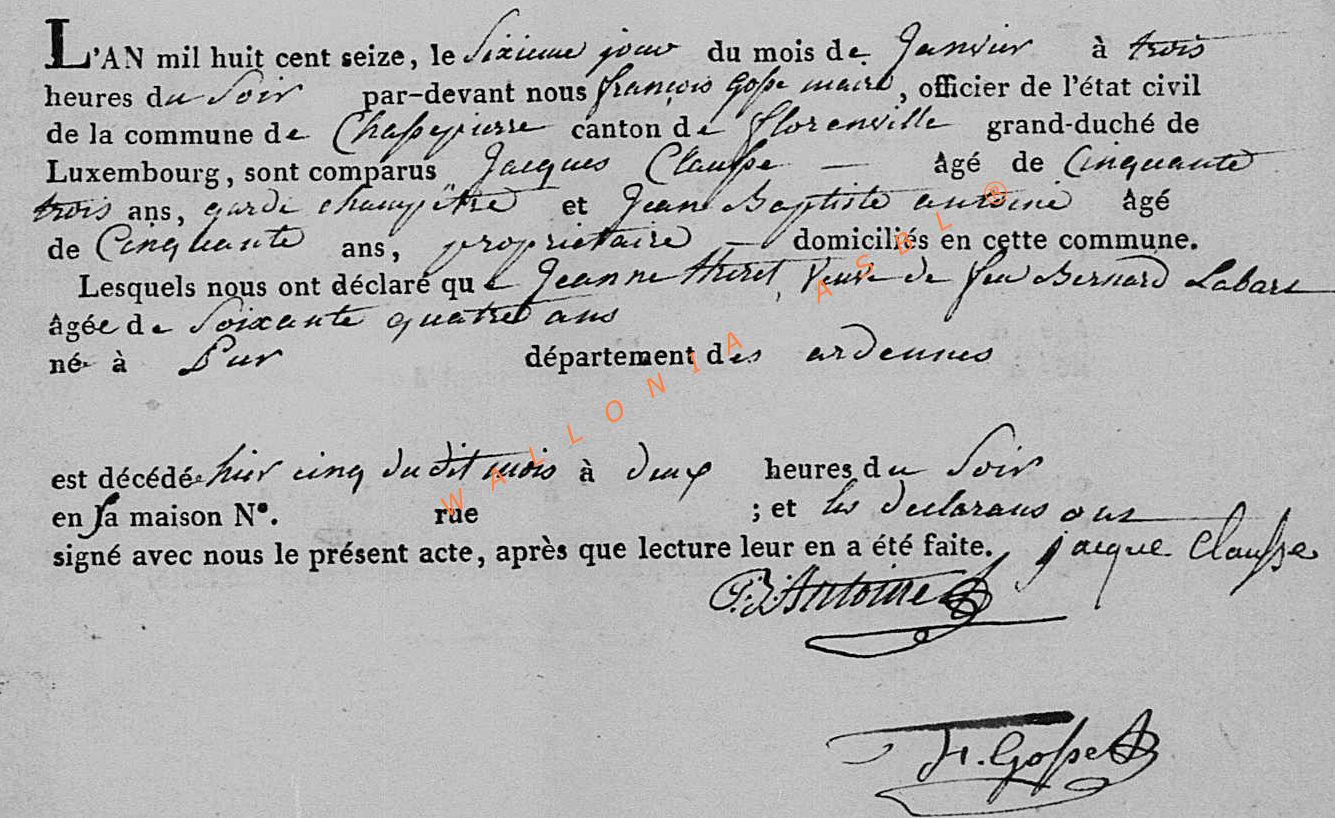 L'AN mil huit cent seize, le Sixieme jour du mois de Janvier à trois
heures du Soir par-devant nous françois Gosse maire, officier de l'état civil
de la commune de Chassepierre canton de florenville grand-duché de
Luxembourg, sont comparus Jacques Clausse — âgé de Cinquante
trois ans, garde champêtre et Jean Baptiste antoine âgé
de Cinquante ans, proprietaire — domiciliés en cette commune.
Lesquels nous ont déclaré que Jeanne thiret, Veuve de feu Bernard Labare
âgée de Soixante quatre ans
né à Pur département des ardennes
est décédé hier cinq du dit mois à deux heures du Soir
en Sa maison N°. rue ; et les declarans ont
signé avec nous le présent acte, après que lecture leur en a été faite. jacque Clausse
J:B:Antoine
fr. Gosse
WALLONIA ASBL ®